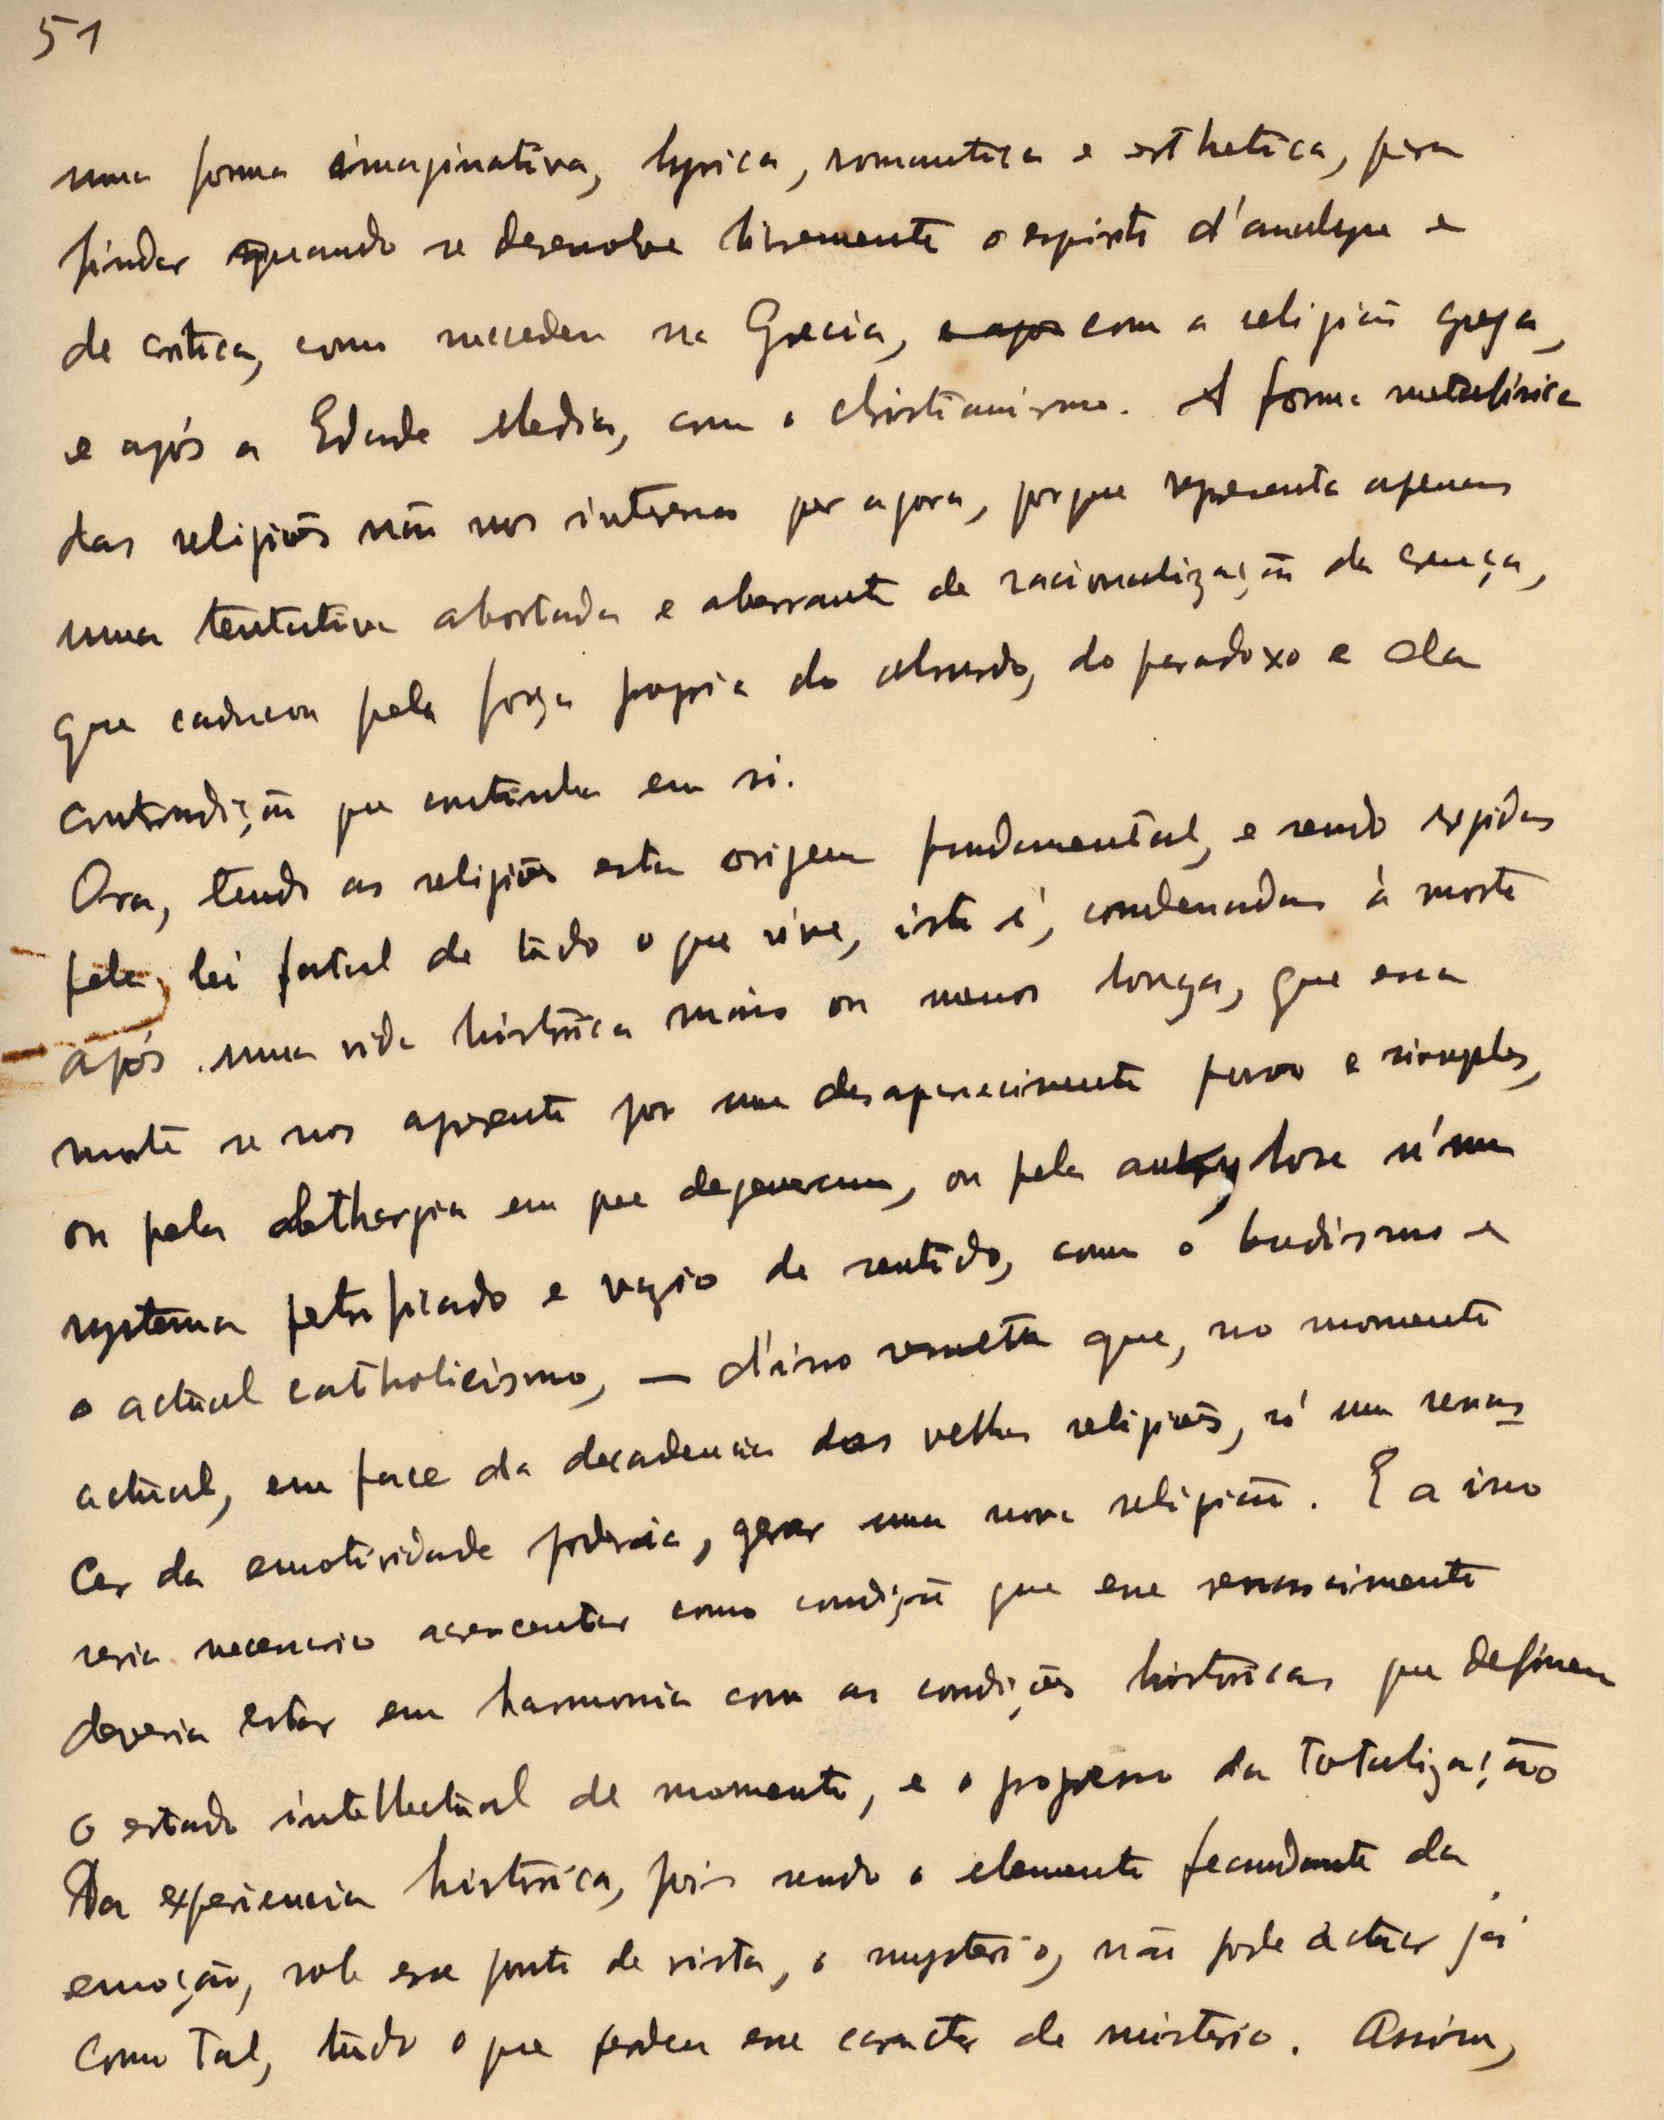 51
uma forma imaginativa, lyrica, romantica e esthetica, para
findar quando se desenvolve livremente o espirito d'analyse e
de critica, como succedeu na Grecia, e apos com a religião grega,
e após a Edade Media, com o christianismo. A forma metafísica
das religiões não nos interessa por agora, porque representa apenas
uma tentativa abortada e aberrante de racionalização da crença,
que caducou pela força propria do absurdo, do paradoxo e da
contradição que continha em si.
Ora, tendo as religiões esta origem fundamental, e sendo regidas
pela lei fatal de tudo o que vive, isto é, condenadas à morte
após uma vida histórica mais ou menos longa, que essa
morte se nos apresente por um desaparecimento puro e simples,
ou pela lethargia em que degeneram, ou pela ankylose n'um
systema petrificado e vazio de sentido, como o budismo e
o actual catholicismo, — d'isso resulta que, no momento
actual, em face da decadencia das velhas religiões, só um renas
cer da emotividade poderia, gerar uma nova religião. E a isso
seria necessario acrescentar como condição que esse renascimento
deveria estar em harmonia com as condições históricas que definem
o estado intellectual de momento, e o progresso da totalização
da experiencia histórica, pois sendo o elemento fecundante da
emoção, sob esse ponto de vista, o mysterio, não pode actuar já
como tal, tudo o que perdeu esse caracter de misterio. Assim,